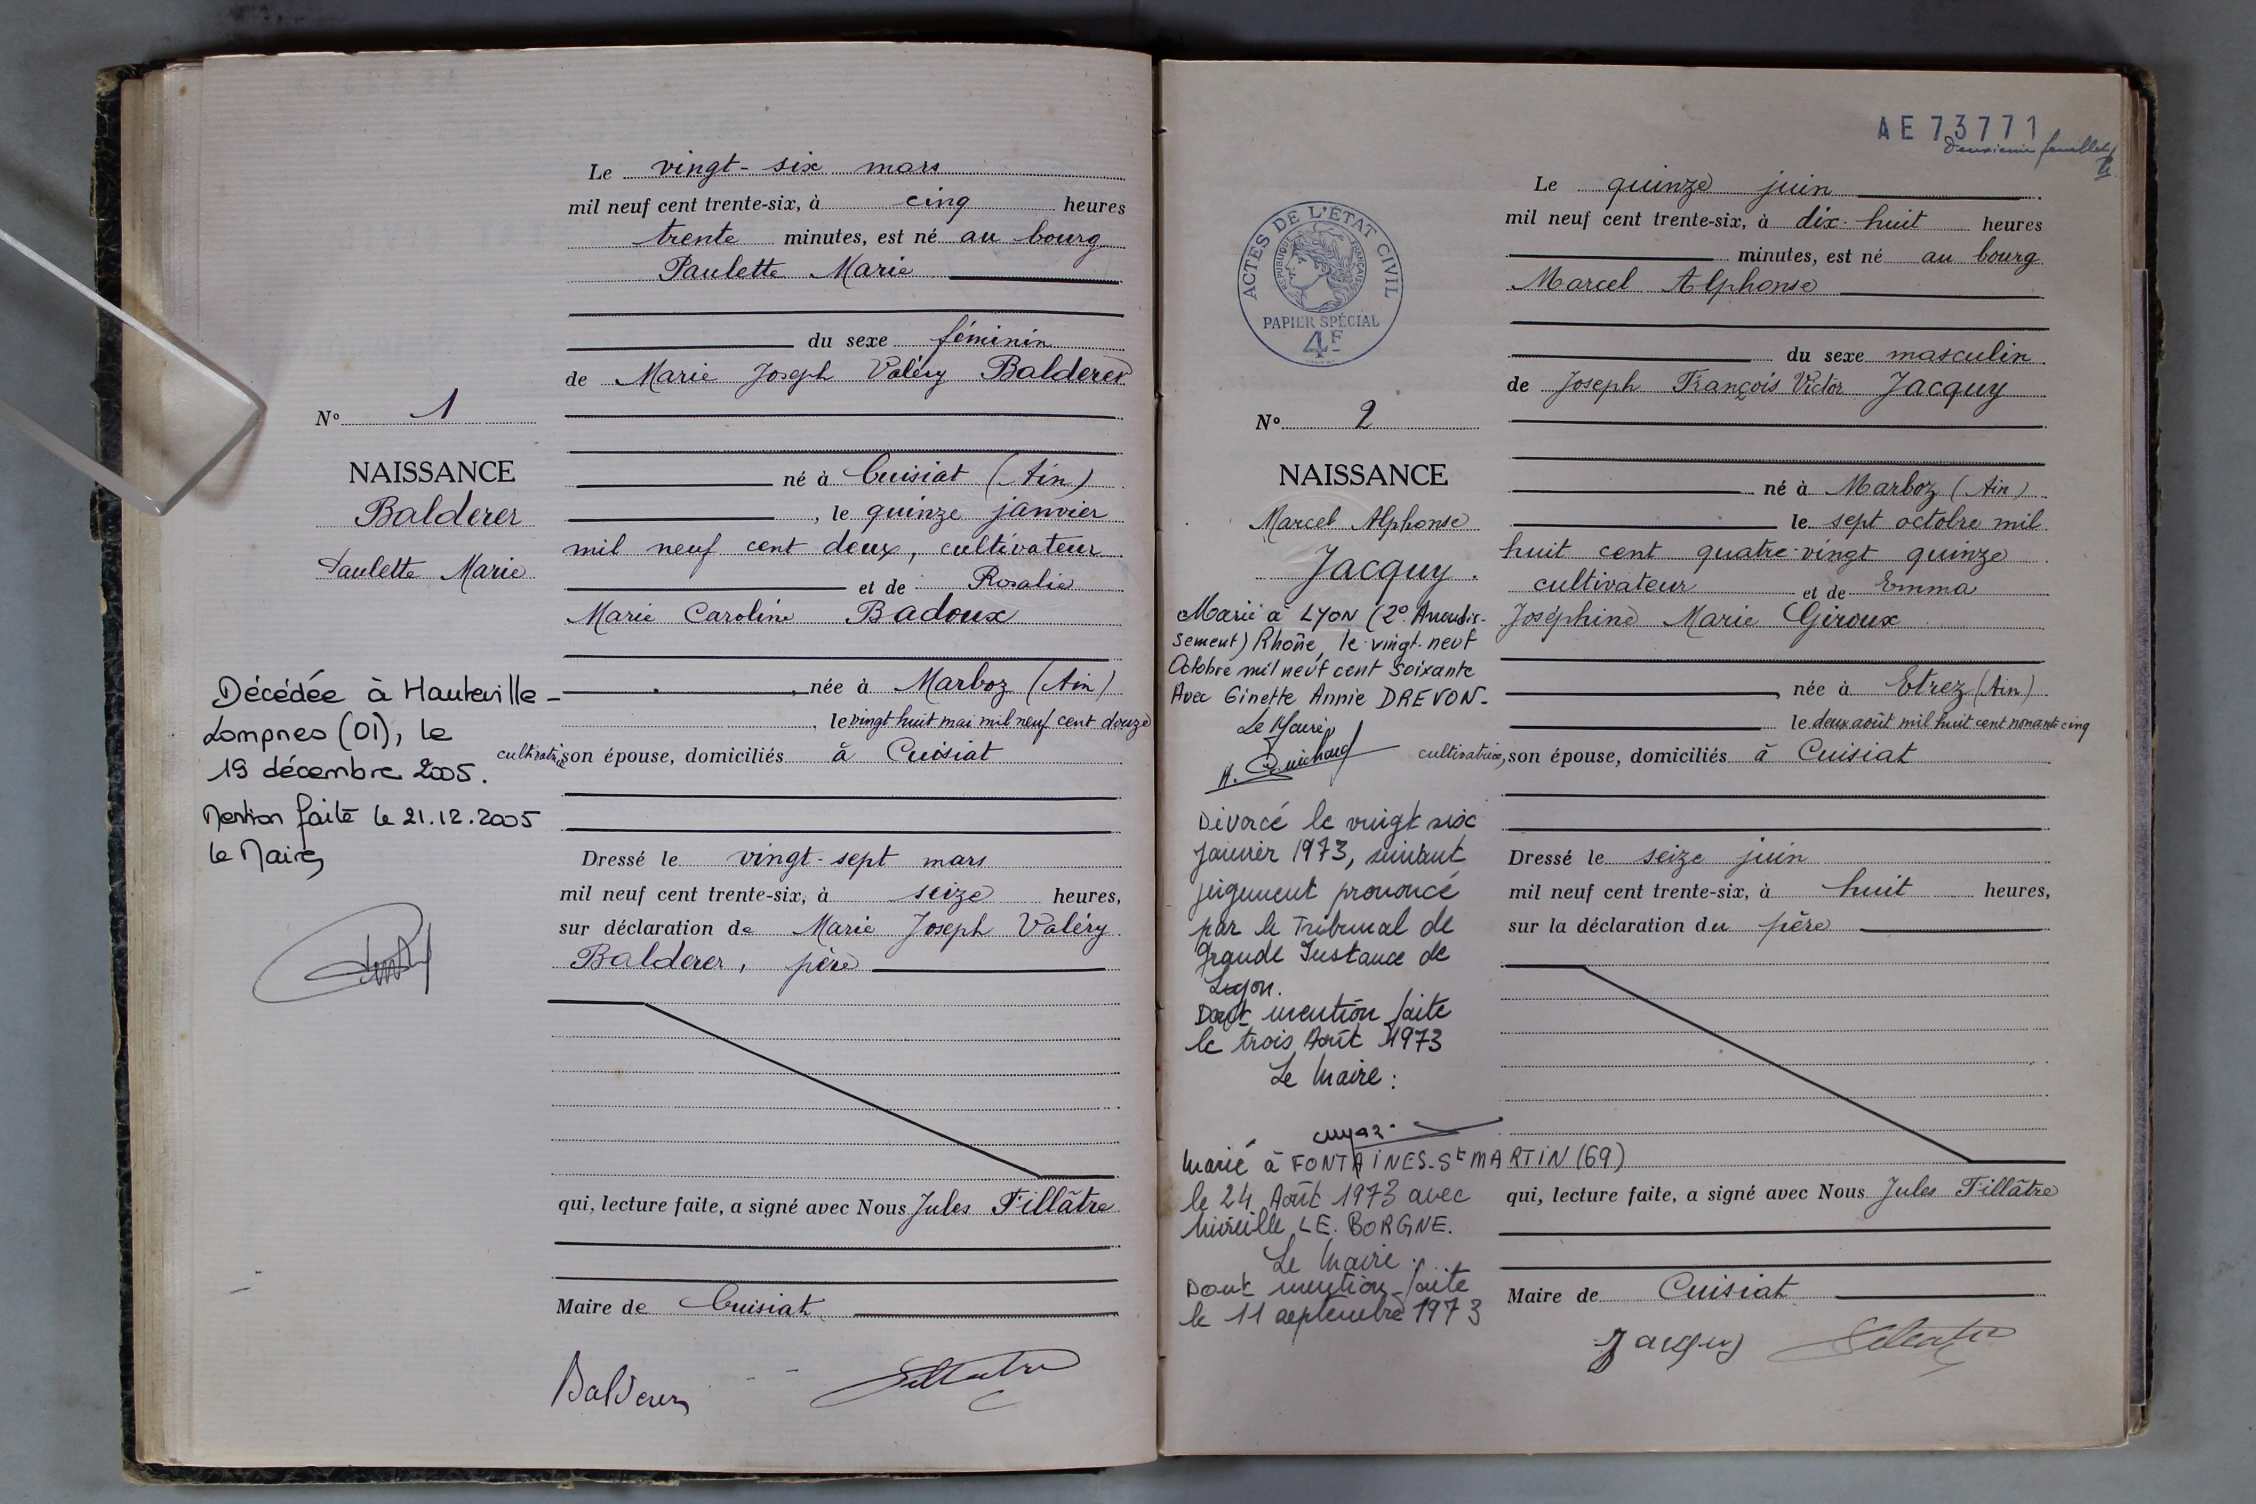 Le vingt-six mars
mil neuf cent trente-six, à cinq heures
trente minutes, est né au bourg
Paulette Marie
du sexe féminin
de Marie Joseph Valéry Balderer
N° 1
NAISSANCE
Balderer
Paulette Marie
né à Cuisiat (Ain)
, le quinze janvier
mil neuf cent deux, cultivateur
et de Rosalie
Marie Caroline Badoux
née à Marboz (Ain)
, le vingt huit mai mil neuf cent douze
cultivatrice son épouse, domiciliés à Cuisiat
Décédée à Hauteville-
Lompnes (01), le
19 décembre 2005.
Mention faite le 21.12.2005
le Maire,
Dressé le vingt-sept mars
mil neuf cent trente-six, à seize heures,
sur déclaration de Marie Joseph Valéry
Balderer, père
qui, lecture faite, a signé avec Nous Jules Fillâtre
Maire de Cuisiat
Balderer
Fillatre
AE 73771
deuxième feuillet
ACTES DE L'ÉTAT CIVIL
RÉPUBLIQUE FRANÇAISE
PAPIER SPÉCIAL
4F
Le quinze juin
mil neuf cent trente-six, à dix-huit heures
minutes, est né au bourg
Marcel Alphonse
du sexe masculin
de Joseph François Victor Jacquy
N° 2
NAISSANCE
Marcel Alphonse
Jacquy.
né à Marboz (Ain)
le sept octobre mil
huit cent quatre-vingt quinze
cultivateur et de Emma
Joséphine Marie Giroux
née à Etrez (Ain)
le deux août mil huit cent nonante cinq
cultivatrice, son épouse, domiciliés à Cuisiat
Marié à LYON (2° Arrondis-
sement) Rhône, le vingt-neuf
Octobre mil neuf cent soixante
Avec Ginette Annie DREVON-
Le Maire,
Divorcé le vingt six
Janvier 1973, suivant
jugement prononcé
par le Tribunal de
Grande Instance de
Lyon.
Dont mention faite
le trois Août 1973
Le Maire :
Marié à FONTAINES-St MARTIN (69)
le 24 Août 1973 avec
Mireille LE BORGNE.
Le Maire.
Dont mention faite
le 11 septembre 1973
Dressé le seize juin
mil neuf cent trente-six, à huit heures,
sur la déclaration du père
qui, lecture faite, a signé avec Nous Jules Fillâtre
Maire de Cuisiat
Jacquy
Fillatre